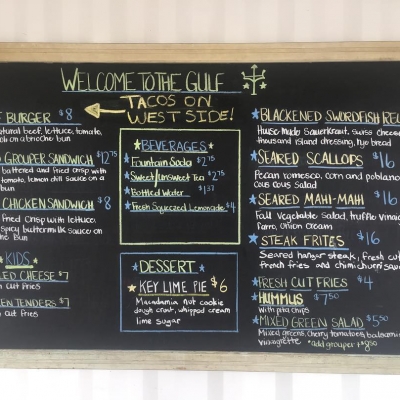 WELCOME TO THE GULF
TACOS ON
WEST SIDE!
BURGER $8
natural beef, lettuce, tomato,
on a brioche bun
GROUPER SANDWICH $12.75
battered and fried crisp with
tomato, lemon dill sauce on a
bun
CHICKEN SANDWICH $8
fried crisp with lettuce,
spicy buttermilk sauce on
bun
KIDS
CHEESE $7
cut fries
TENDERS $7
cut fries
BEVERAGES
Fountain Soda $2.75
Sweet/Unsweet Tea $2.75
Bottled Water $1.37
Fresh Squeezed Lemonade $4
DESSERT
KEY LIME PIE $6
Macadamia nut cookie
dough crust, whipped cream
lime sugar
BLACKENED SWORDFISH REU
House Made Sauerkraut, swiss cheese
thousand island dressing, rye bread
SEARED SCALLOPS $16
Pecan romesco, corn and poblano
cous cous salad
SEARED MAHI-MAHI $16
Fall Vegetable Salad, truffle vinai
Parro, onion cream
STEAK FRITES $16
Seared hangar steak, fresh cut
french fries and chimichurri sauc
FRESH CUT FRIES $4
HUMMUS $7.50
with pita chips
MIXED GREEN SALAD $5.50
Mixed greens, cherry tomatoes, balsami
vinaigrette *add grouper +$8.50